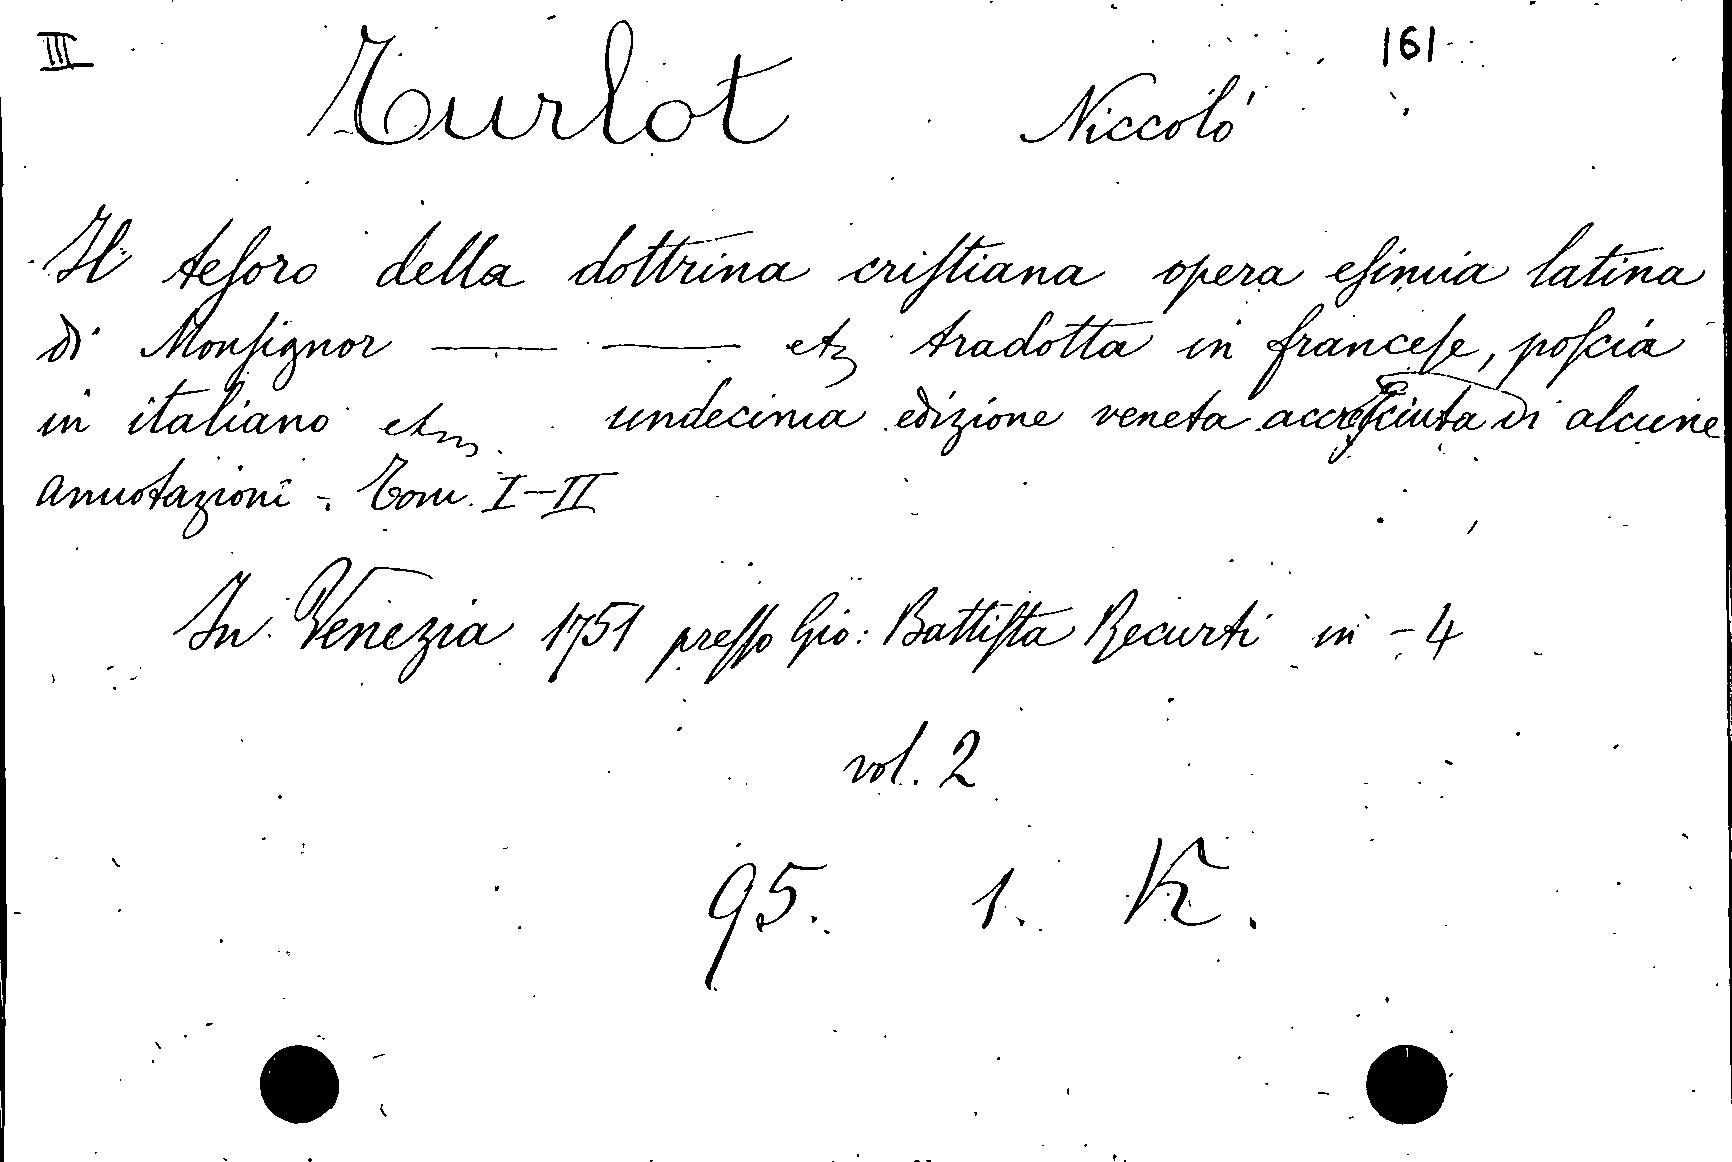 III 161
Turlot Niccoló
Il teſoro della dottrina criſtiana opera eſimia latina
di Monſignor —— —— etc tradotta in franceſe, poſcia
in italiano etc undecima edizione veneta accreſciuta di alcune
annotazioni - Tom. I-II
In Venezia 1751 preſſo Gio: Battiſta Recurti in - 4
vol. 2
95. 1. K.